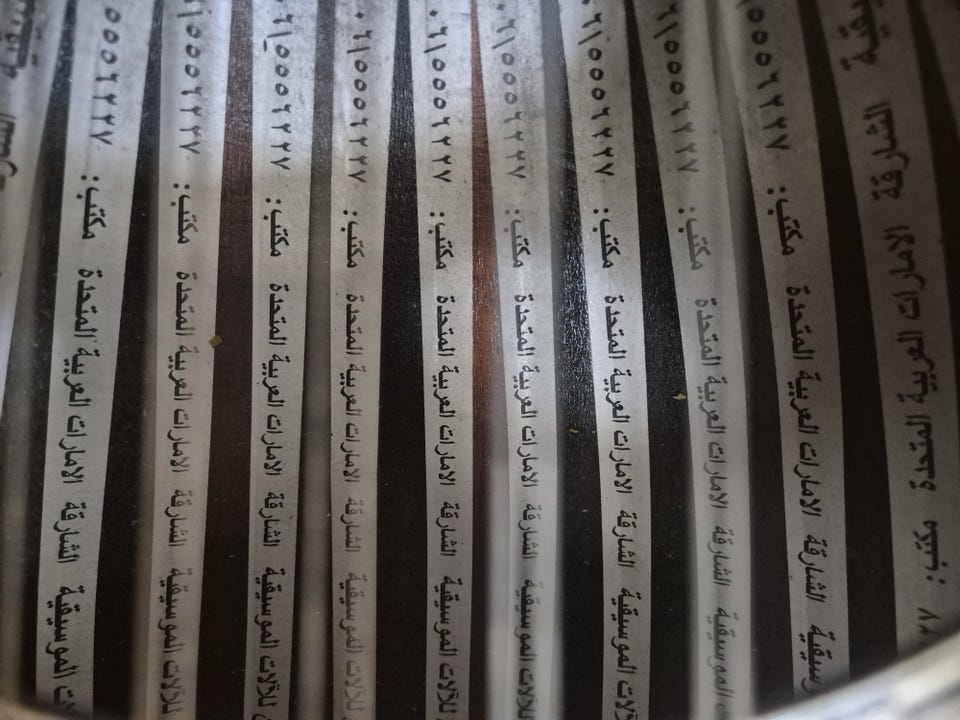 الشارقة الامارات العربية المتحدة مكتب:
الشارقة الامارات العربية المتحدة مكتب: ٥٥٥٦٢٢٧
الموسيقية الشارقة الامارات العربية المتحدة مكتب: ٠٦/٥٥٥٦٢٢٧
الموسيقية الشارقة الامارات العربية المتحدة مكتب: ٠٦/٥٥٥٦٢٢٧
للآلات الموسيقية الشارقة الامارات العربية المتحدة مكتب: ٠٦/٥٥٥٦٢٢٧
للآلات الموسيقية الشارقة الامارات العربية المتحدة مكتب: ٠٦/٥٥٥٦٢٢٧
للآلات الموسيقية الشارقة الامارات العربية المتحدة مكتب: ٠٦/٥٥٥٦٢٢٧
للآلات الموسيقية الشارقة الامارات العربية المتحدة مكتب: ٠٦/٥٥٥٦٢٢٧
للآلات الموسيقية الشارقة الامارات العربية المتحدة مكتب: /٥٥٥٦٢٢٧
الموسيقية الشارقة الامارات العربية المتحدة مكتب: ٥٥٥٦٢٢٧